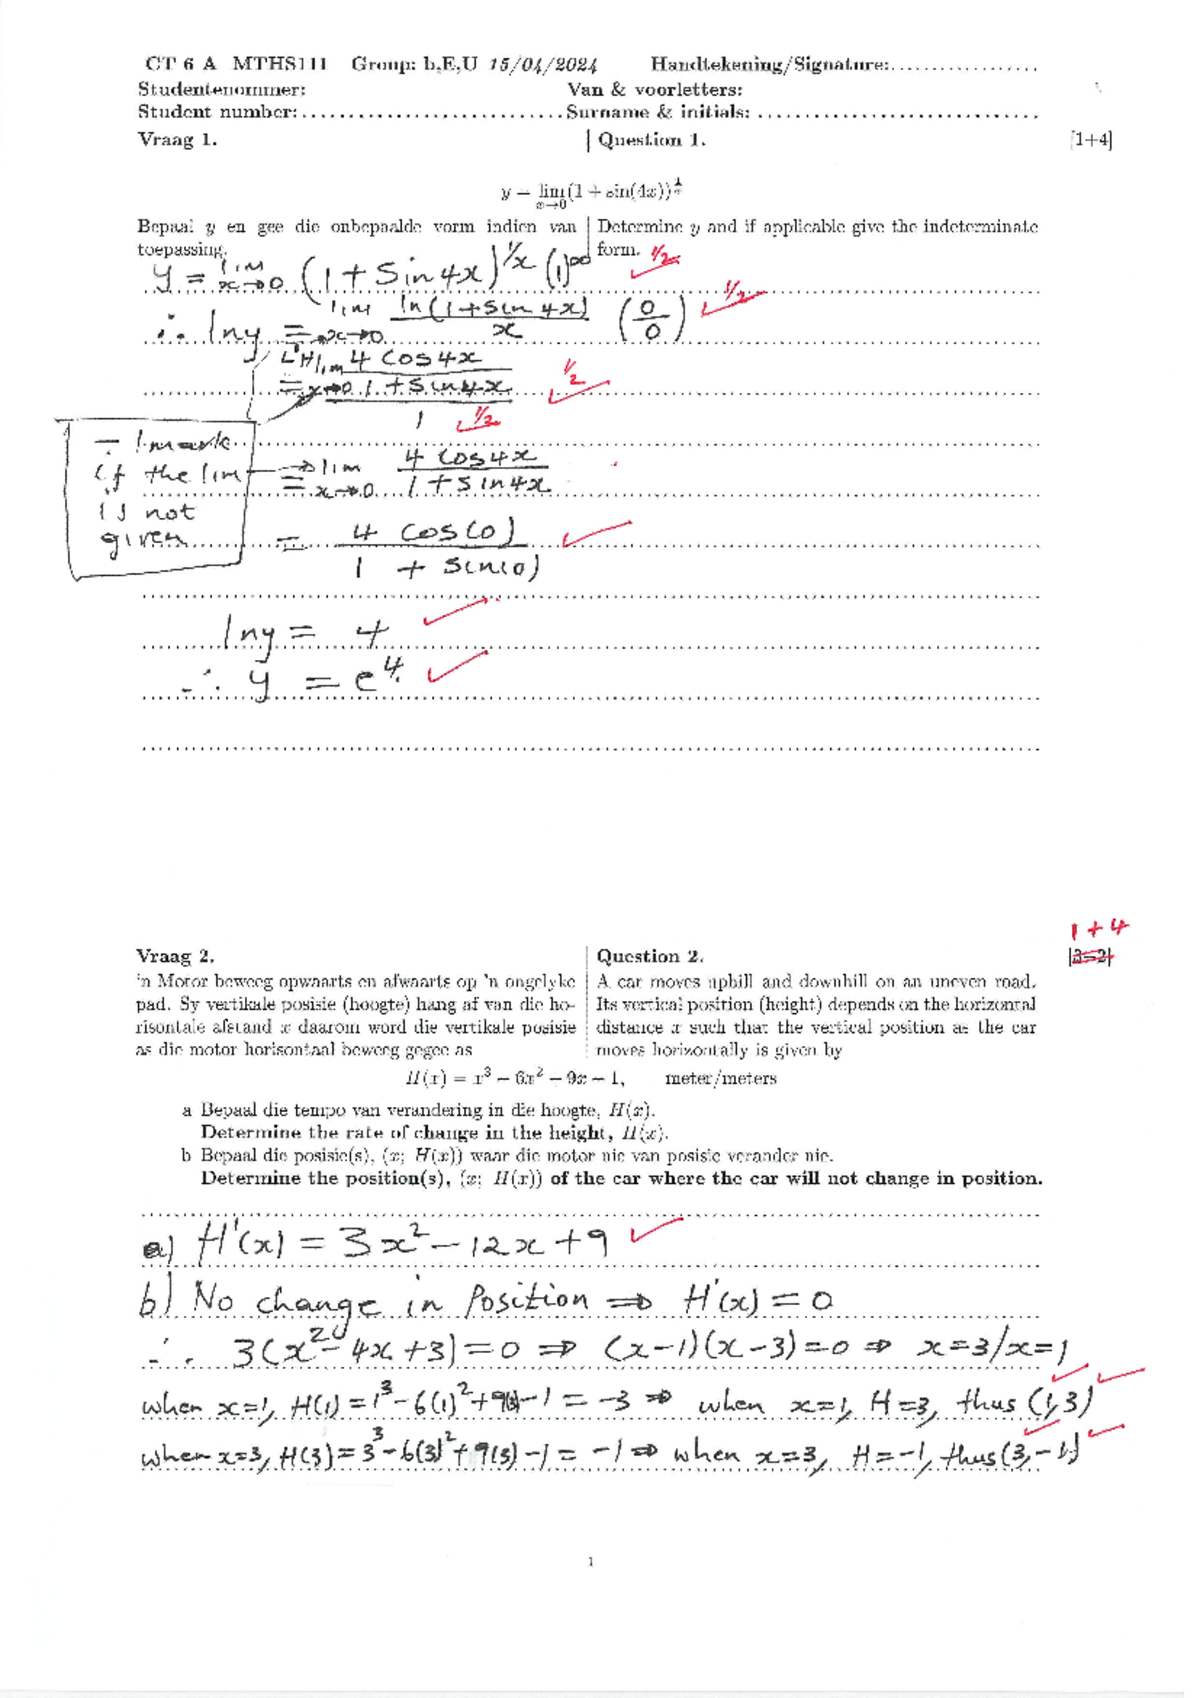 CT 6 A MTHS111 Group: b,E,U 15/04/2024 Handtekening/Signature:..................
Studentenommer: Van & voorletters:
Student number:............................Surname & initials: ..............................
Vraag 1. Question 1. [1+4]
y = lim x→0 (1 + sin(4x))^{1/x}
Bepaal y en gee die onbepaalde vorm indien van toepassing.
Determine y and if applicable give the indeterminate form. 1/2
y = lim x→0 (1 + sin 4x)^{1/x} (1)^∞
∴ ln y = lim x→0 ln(1 + sin 4x) / x (0/0) 1/2
L'H = lim x→0 4 cos 4x / 1 + sin 4x 1/2
1 1/2
– 1 mark if the lim is not given
= lim x→0 4 cos 4x / 1 + sin 4x
= 4 cos(0) / 1 + sin(0)
ln y = 4
∴ y = e^4.
1 + 4
Vraag 2. Question 2.
'n Motor beweeg opwaarts en afwaarts op 'n ongelyke pad. Sy vertikale posisie (hoogte) hang af van die horisontale afstand x daarom word die vertikale posisie as die motor horisontaal beweeg gegee as
A car moves uphill and downhill on an uneven road. Its vertical position (height) depends on the horizontal distance x such that the vertical position as the car moves horizontally is given by
H(x) = x³ – 6x² – 9x – 1, meter/meters
a Bepaal die tempo van verandering in die hoogte, H(x).
Determine the rate of change in the height, H(x).
b Bepaal die posisie(s), (x; H(x)) waar die motor nie van posisie verander nie.
Determine the position(s), (x; H(x)) of the car where the car will not change in position.
a) H'(x) = 3x² – 12x + 9
b) No change in Position ⇒ H'(x) = 0
∴ 3(x² – 4x + 3) = 0 ⇒ (x–1)(x–3) = 0 ⇒ x=3/x=1
when x=1, H(1) = 1³ – 6(1)² + 9(1) – 1 = –3 ⇒ when x=1, H=3, thus (1,3)
when x=3, H(3) = 3³ – 6(3)² + 9(3) – 1 = –1 ⇒ when x=3, H=–1, thus (3,–1)
1